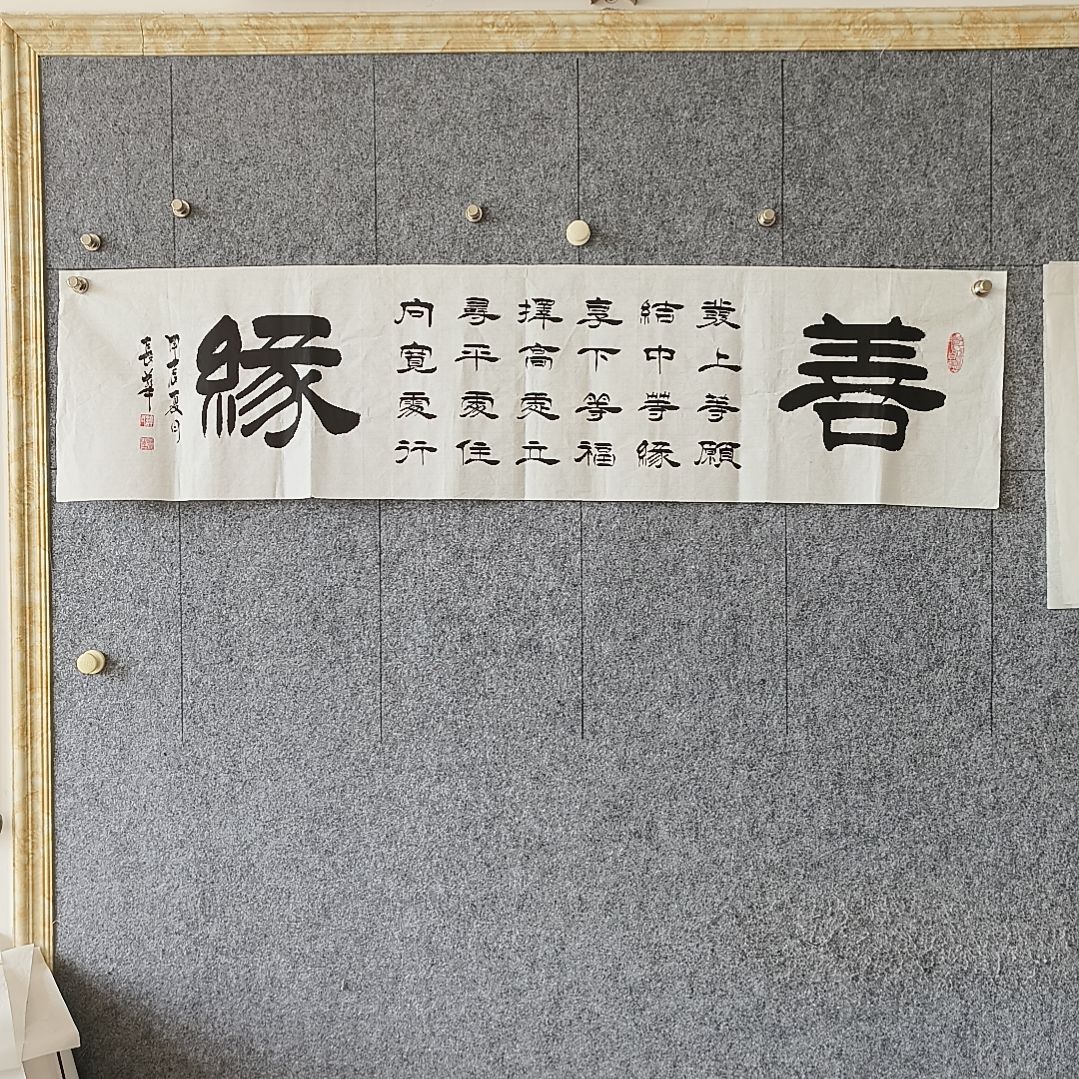 善
發上等願
結中等緣
享下等福
擇高處立
尋平處住
向寬處行
緣
甲辰夏月
長華